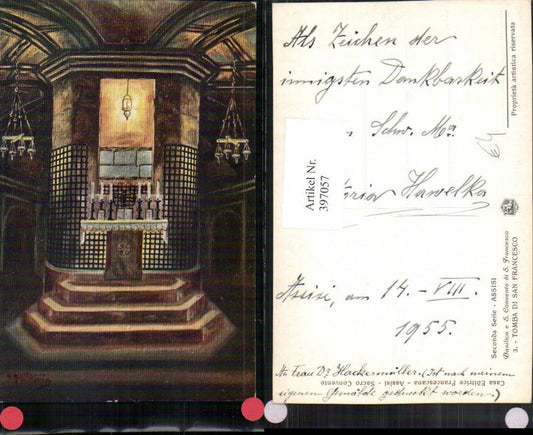 Als Zeichen der
innigsten Dankbarkeit
Schw. Ma
Hawelka
Assisi, am 14. - VIII.
1955.
An Frau Dr. Hackermüller. (Ist nach meinem
eigenen Gemälde gedruckt worden.)
Artikel Nr.
397057
Proprietà artistica riservata
Seconda Serie - ASSISI
Basilica e S. Convento di S. Francesco
3. - TOMBA DI SAN FRANCESCO
Casa Editrice Francescana - Assisi - Sacro Convento